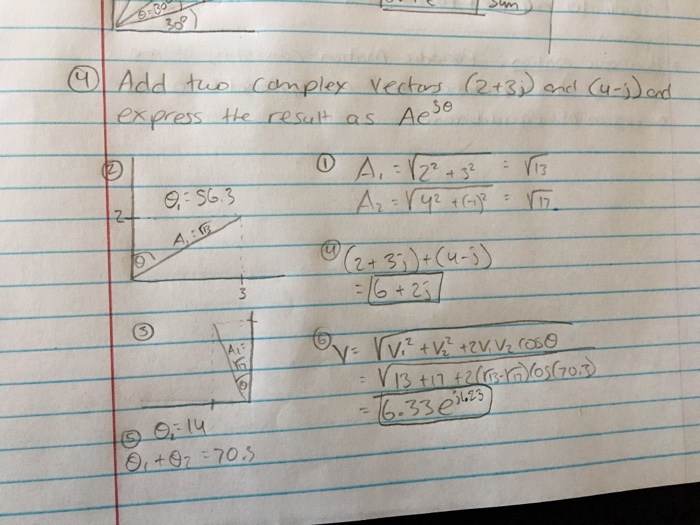 θ=30°
30°
Sum
④ Add two complex vectors (2+3j) and (4-j) and
express the result as Ae^jθ
② θ₁=56.3
2
A₁=√13
θ
3
① A₁ = √2² + 3² = √13
A₂ = √4² + (-1)² = √17
④ (2+3j)+(4-j)
= 6 + 2j
③
A₂=
√17
θ
⑤ θ₂=14
θ₁ + θ₂ = 70.3
⑥ V = √V₁² + V₂² + 2V₁V₂ cosθ
= √13 + 17 + 2(√13·√17)cos(70.3)
= 6.33e^j1.23